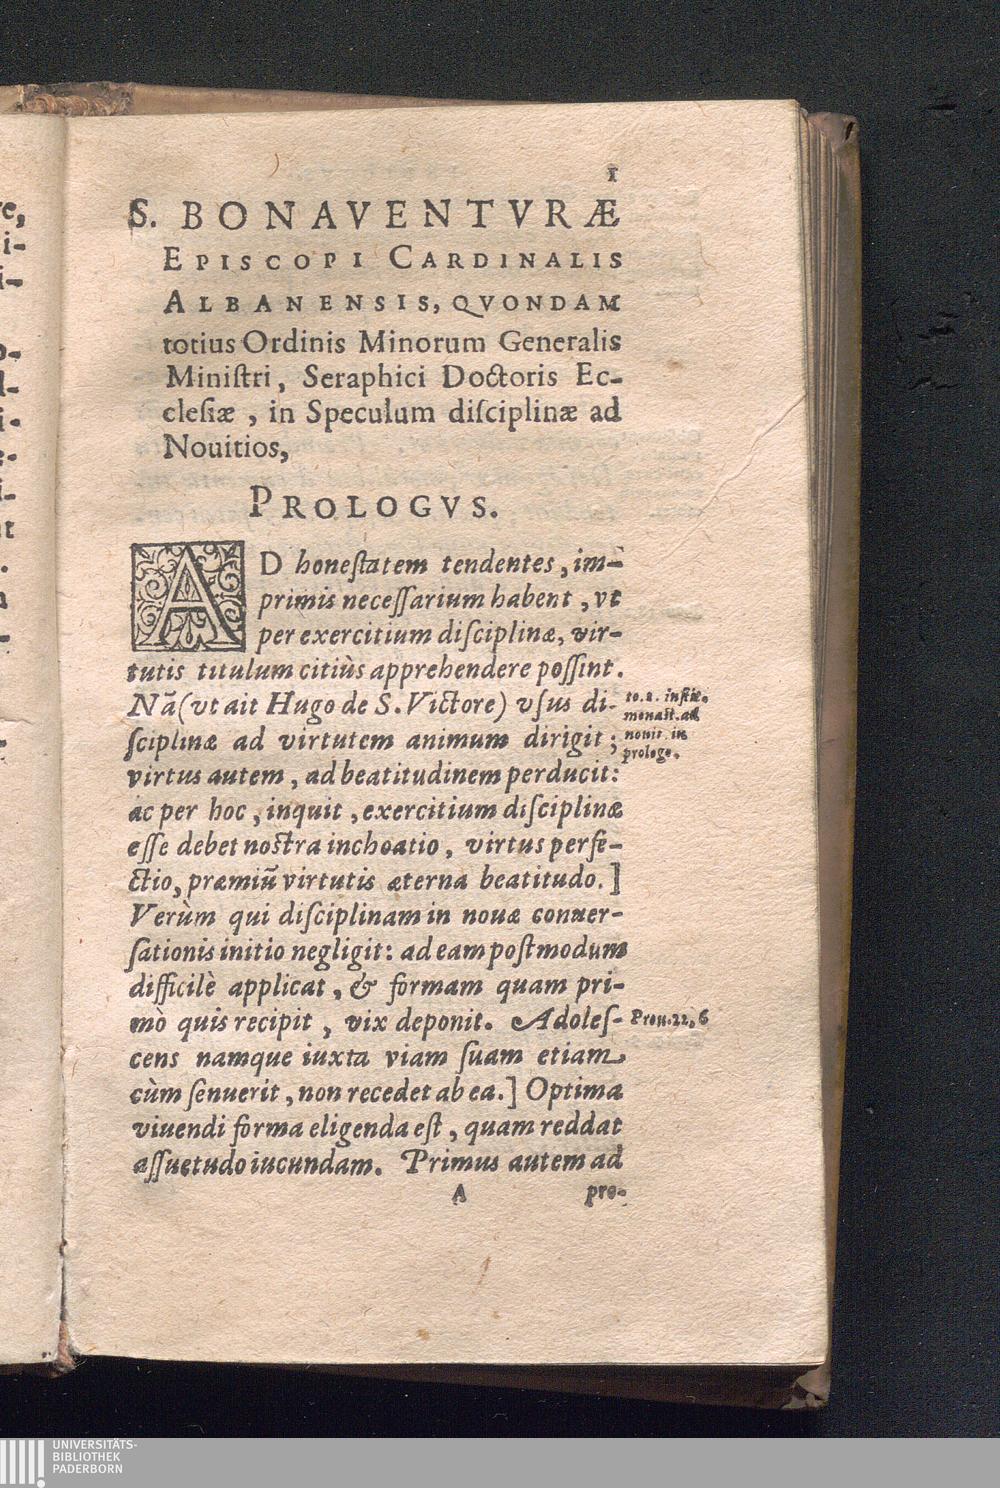 1
S. BONAVENTVRÆ
EPISCOPI CARDINALIS
ALBANENSIS, QVONDAM
totius Ordinis Minorum Generalis
Miniſtri, Seraphici Doctoris Ec-
cleſiæ, in Speculum diſciplinæ ad
Nouitios,
PROLOGVS.
AD honeſtatem tendentes, im-
primis neceſſarium habent, vt
per exercitium diſciplinæ, vir-
tutis titulum citiùs apprehendere poſſint.
Nã (vt ait Hugo de S. Victore) vſus di-
ſciplinæ ad virtutem animum dirigit;
virtus autem, ad beatitudinem perducit:
ac per hoc, inquit, exercitium diſciplinæ
eſſe debet noſtra inchoatio, virtus perfe-
ctio, præmiũ virtutis æterna beatitudo.]
Verùm qui diſciplinam in nouæ conuer-
ſationis initio negligit: ad eam poſtmodum
difficilè applicat, & formam quam pri-
mò quis recipit, vix deponit. Adoleſ-
cens namque iuxta viam ſuam etiam
cùm ſenuerit, non recedet ab ea.] Optima
viuendi forma eligenda eſt, quam reddat
aſſuetudo iucundam. Primus autem ad
A pro-
to. 2. inſtit.
monaſt. ad
nouit. in
prologo.
Prou. 22. 6
re,
i-
i-
o-
l-
i-
e-
i-
t
UNIVERSITÄTS-
BIBLIOTHEK
PADERBORN